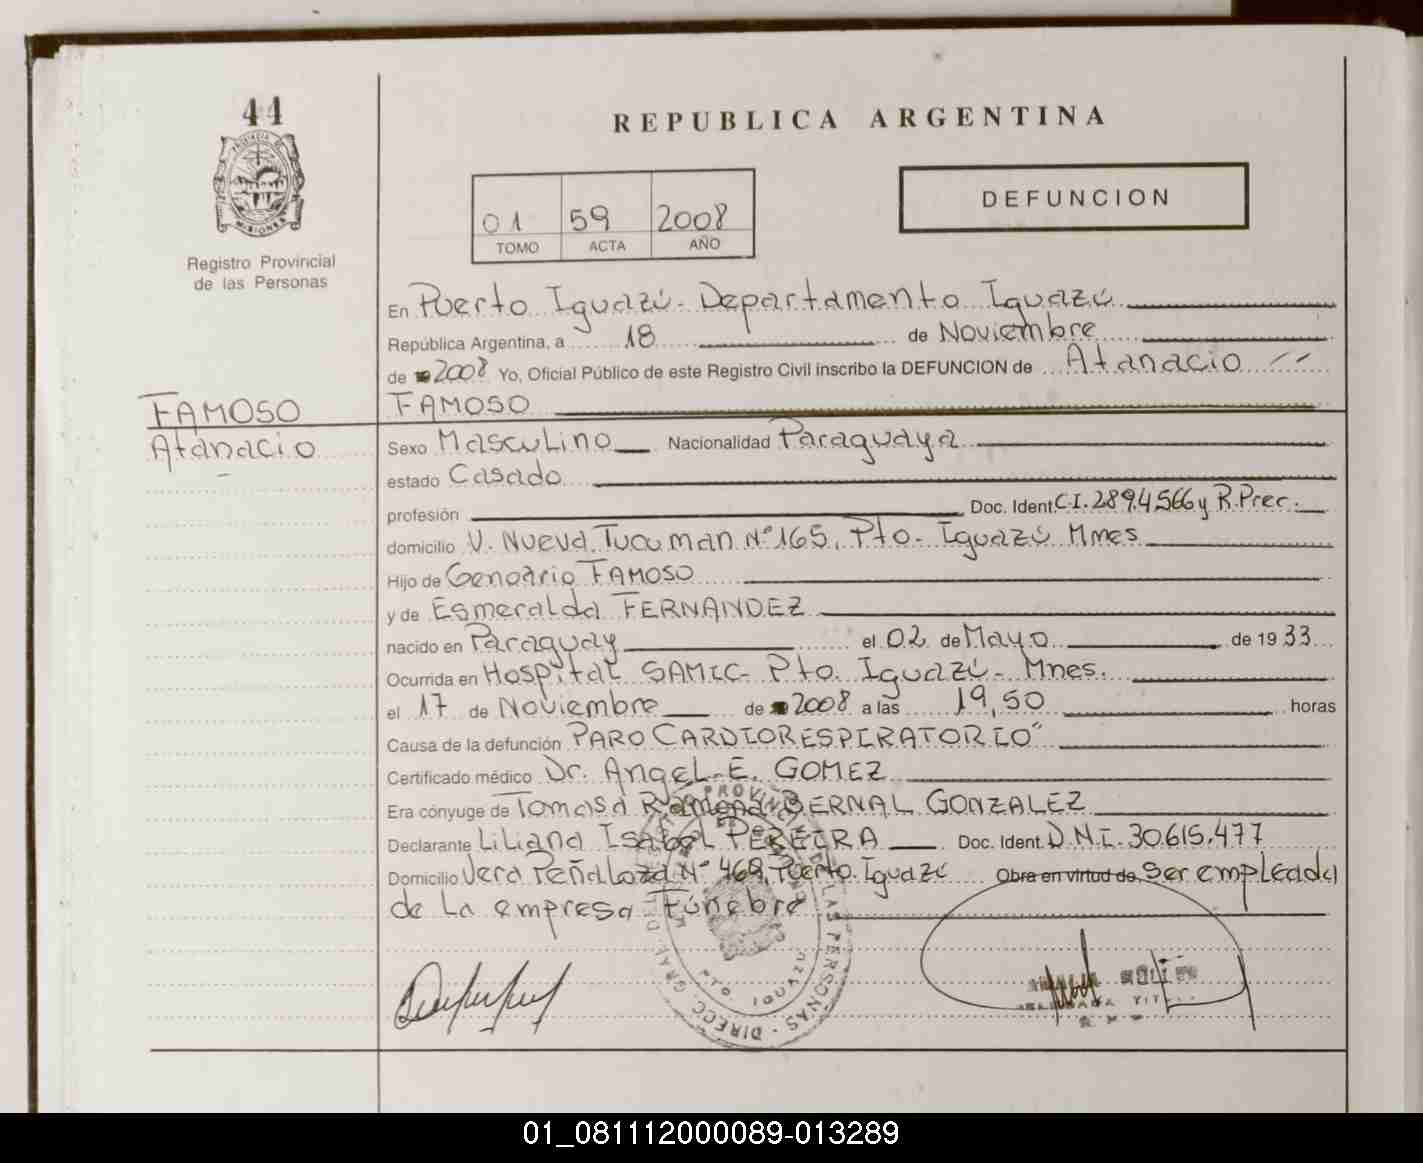 44
REPUBLICA ARGENTINA
DEFUNCION
PROVINCIA DE
MISIONES
01 59 2008
TOMO ACTA AÑO
Registro Provincial
de las Personas
En Puerto Iguazú - Departamento Iguazú
República Argentina, a 18 de Noviembre
de 2008 Yo, Oficial Público de este Registro Civil inscribo la DEFUNCION de Atanacio
FAMOSO FAMOSO
Atanacio Sexo Masculino Nacionalidad Paraguaya
estado Casado
profesión Doc. Ident. C.I. 2894566 y R.Prec.
domicilio V. Nueva Tucuman N° 165, Pto. Iguazú Mnes
Hijo de Genoario FAMOSO
y de Esmeralda FERNANDEZ
nacido en Paraguay el 02 de Mayo de 1933
Ocurrida en Hospital SAMIC - Pto. Iguazú - Mnes.
el 17 de Noviembre de 2008 a las 19,50 horas
Causa de la defunción PARO CARDIORESPIRATORIO"
Certificado médico Dr. Angel E. GOMEZ
Era cónyuge de Tomasa Ramona BERNAL GONZALEZ
Declarante Liliana Isabel PEREIRA Doc. Ident. D.N.I. 30.615.477
Domicilio Vera Peñaloza N° 469, Puerto Iguazú Obra en virtud de Ser empleada
de la empresa Fúnebre
PTO. IGUAZU
DIRECC. GRAL. DE LAS PERSONAS
01_081112000089-013289